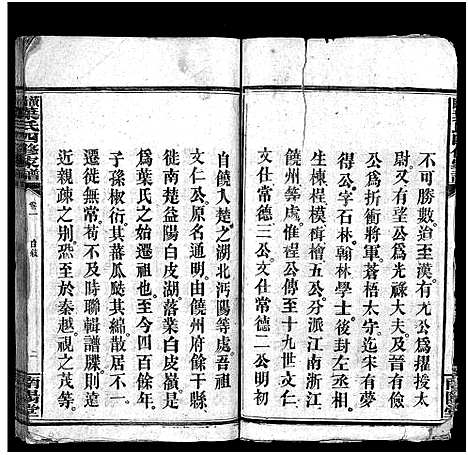 不可勝數迨至漢有尤公爲擢授太
尉又有望公爲光祿大夫及晉有儉
公爲折衝將軍蒼梧太守迄宋有夢
得公字石林翰林學士後封左丞相
生棟桯模楫檜五公分派江南浙江
饒州等處惟桯公傳至十九世文仁
文仕常德三公文仕常德二公明初
自饒入楚之湖北沔陽等處吾祖
文仁公原名通明由饒州府餘干縣
徙南楚益陽白皮湖落業白皮公
爲葉氏之始遷祖也至今四百餘年
子孫椒衍其蕃瓜瓞其綿散居不一
遷徙無常苟不及時聯輯譜牒則遠
近親疎之別恐至於秦越視之茂等
葉氏四修家譜
卷一
自敍
二
南陽堂